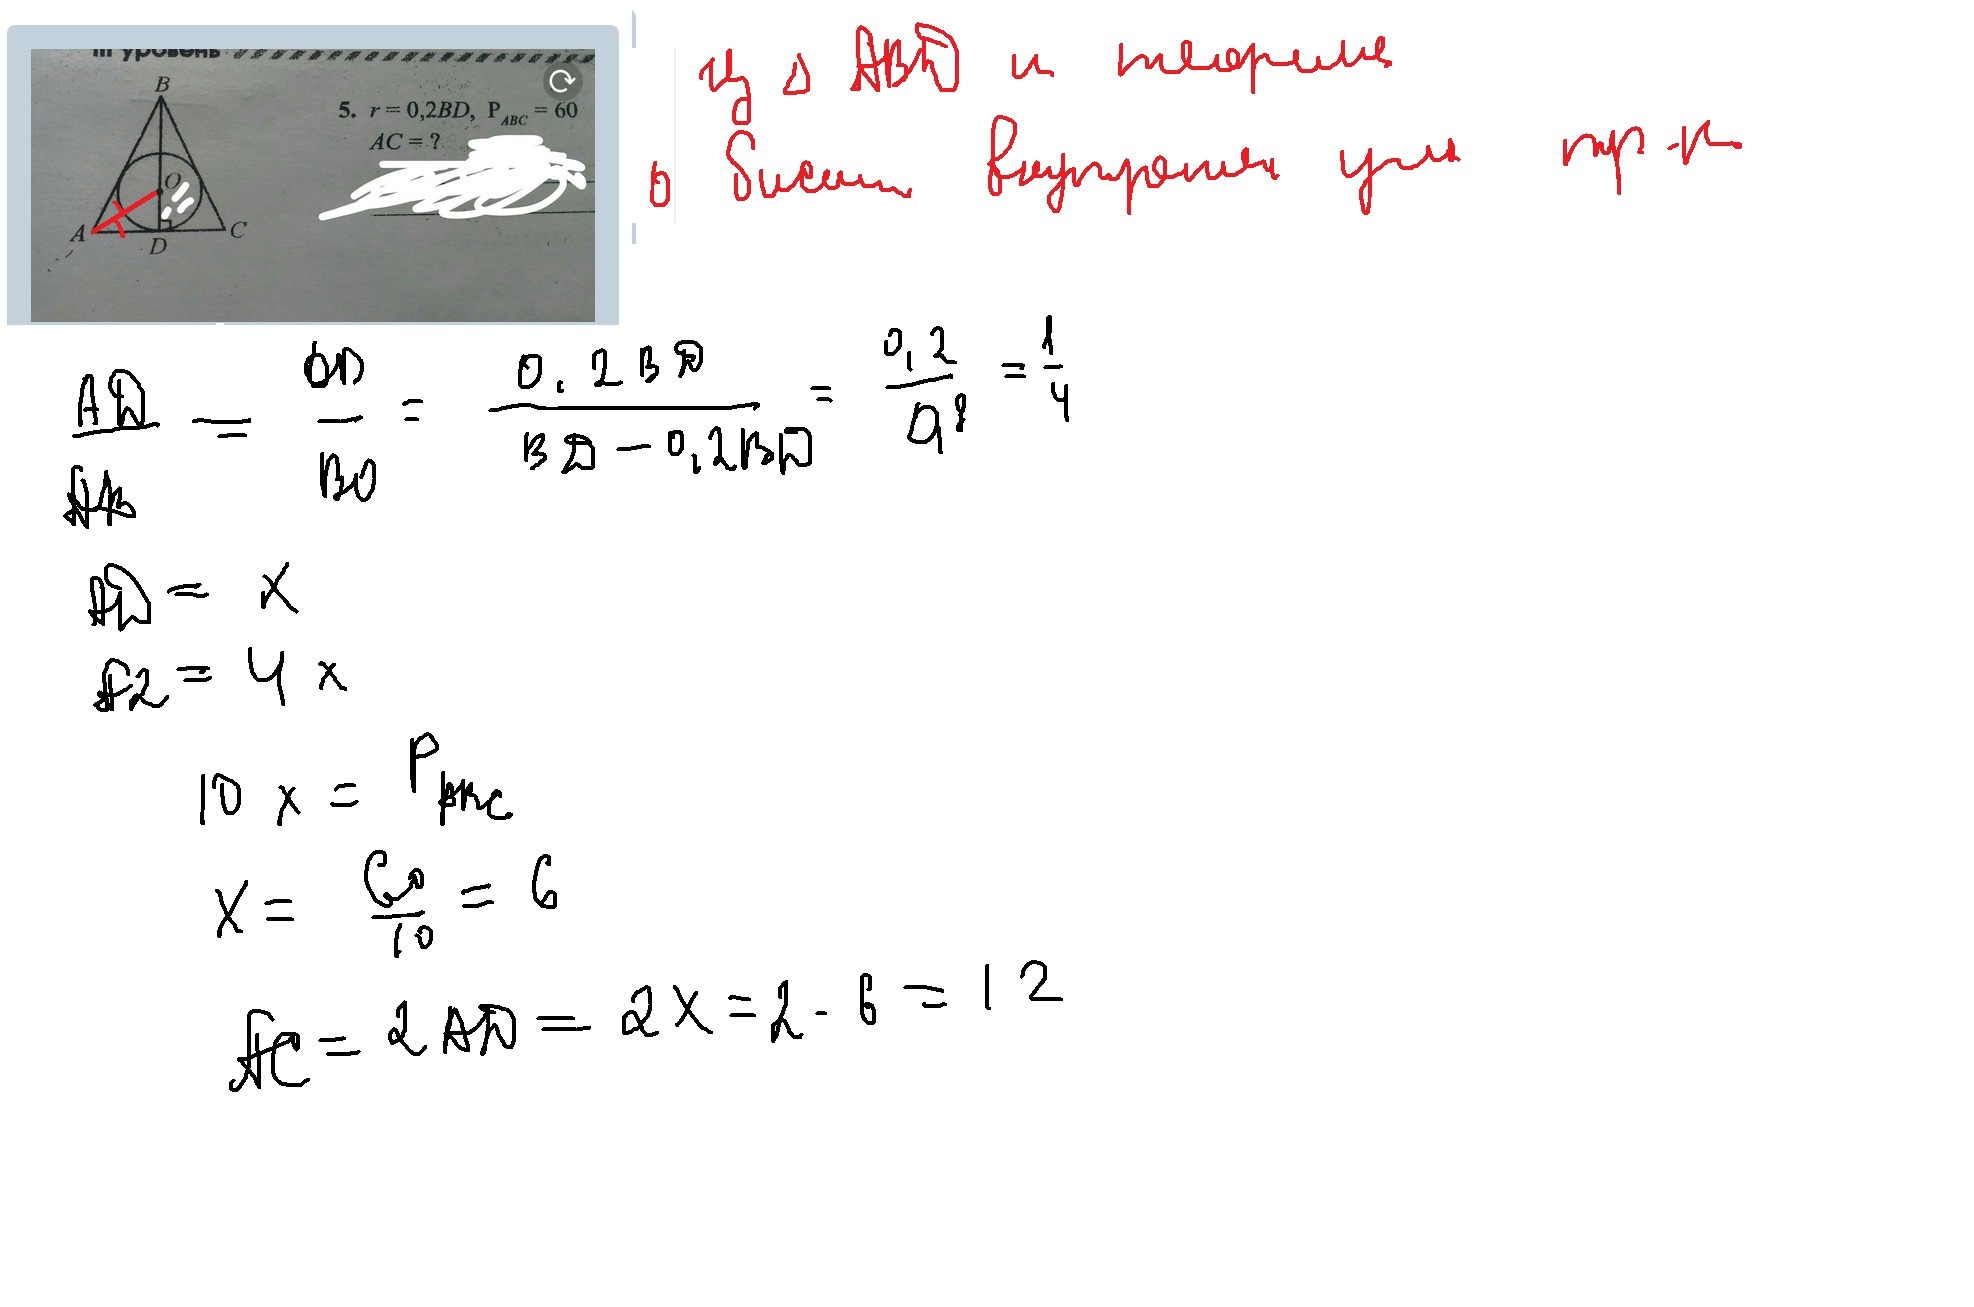 III уровень
B
5. r = 0,2BD, P_ABC = 60
AC = ?
O
A
D
C
из Δ ABD и теореме
о внутреннего угла тр-к
AD/AB = OD/BO = 0,2BD/(BD - 0,2BD) = 0,2/0,8 = 1/4
AD = x
= 4x
10x = P_ABC
x = 60/10 = 6
AC = 2AD = 2x = 2 · 6 = 12